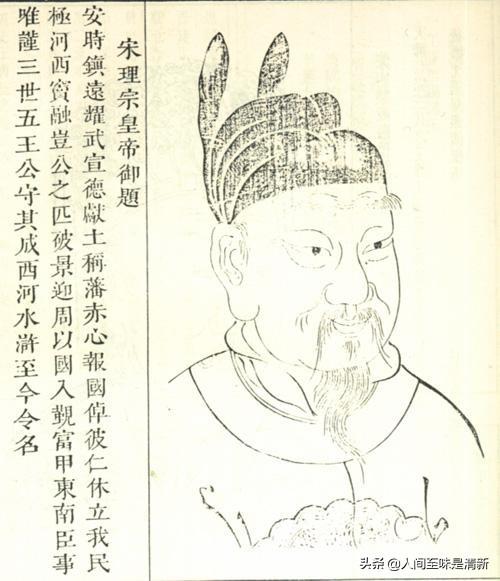 宋理宗皇帝御題
安時鎮遠耀武宣德獻土稱藩赤心報國倬彼仁休立我民
極河西竇融豈公之匹破景迎周以國入覲富甲東南臣事
唯謹三世五王公守其成西河水滸至今令名
头条 @人间至味是清新